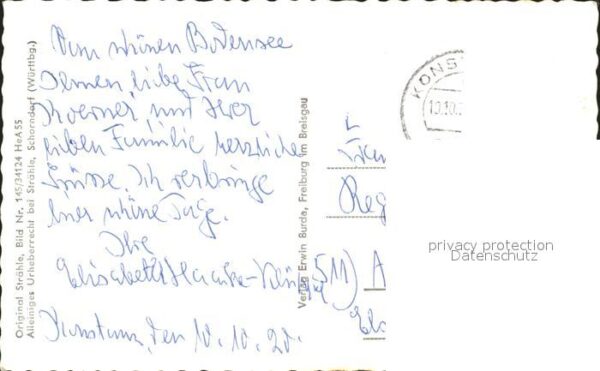 Vom schönen Bodensee
Ihnen, liebe Frau
und Ihrer
lieben Familie herzliche
Grüsse. Ich verbringe
hier schöne Tage.
Ihre
Elisabeth
Konstanz, den 10.10.
Original Strähle, Bild Nr. 145/34124 HeA55
Alleiniges Urheberrecht bei Strähle, Schorndorf (Württbg.)
Verlag Erwin Burda, Freiburg im Breisgau
KONS
10.10.
Reg
privacy protection
Datenschutz